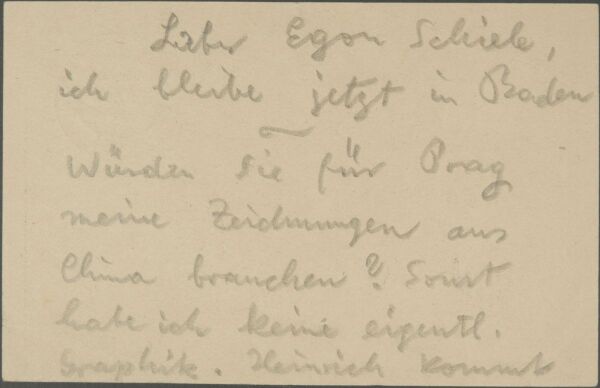 Lieber Egon Schiele,
ich bleibe jetzt in Baden
Würden Sie für Prag
meine Zeichnungen aus
China brauchen? Sonst
habe ich keine eigentl.
Graphik. Heinrich kommt